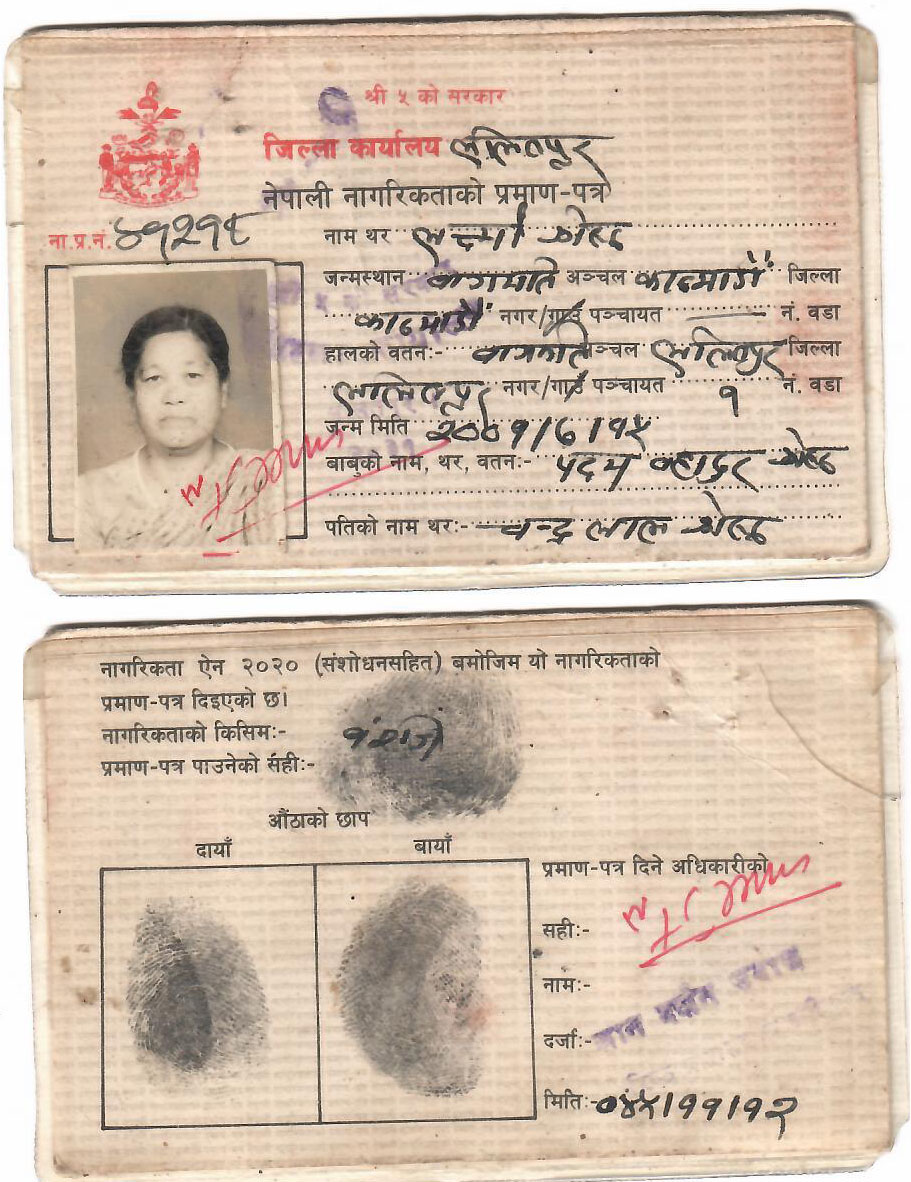 श्री ५ को सरकार
जिल्ला कार्यालय ललितपूर
नेपाली नागरिकताको प्रमाण-पत्र
ना.प्र.नं.
नाम थर लक्ष्मी श्रेष्ठ
जन्मस्थान वागमति अञ्चल काठमाडौं जिल्ला
काठमाडौं नगर/गाउँ पञ्चायत नं. वडा
हालको वतन:- वागमति अञ्चल ललितपुर जिल्ला
ललितपूर नगर/गाउँ पञ्चायत १ नं. वडा
जन्म मिति २००१/६/१५
बाबुको नाम, थर, वतन:- पदम बहादुर श्रेष्ठ
पतिको नाम थर:- चन्द्र लाल श्रेष्ठ
नागरिकता ऐन २०२० (संशोधनसहित) बमोजिम यो नागरिकताको
प्रमाण-पत्र दिइएको छ।
नागरिकताको किसिम:- वंशज
प्रमाण-पत्र पाउनेको सही:-
औंठाको छाप
दायाँ बायाँ
प्रमाण-पत्र दिने अधिकारीको
सही:-
नाम:-
दर्जा:-
मिति:- ०४५/११/१२